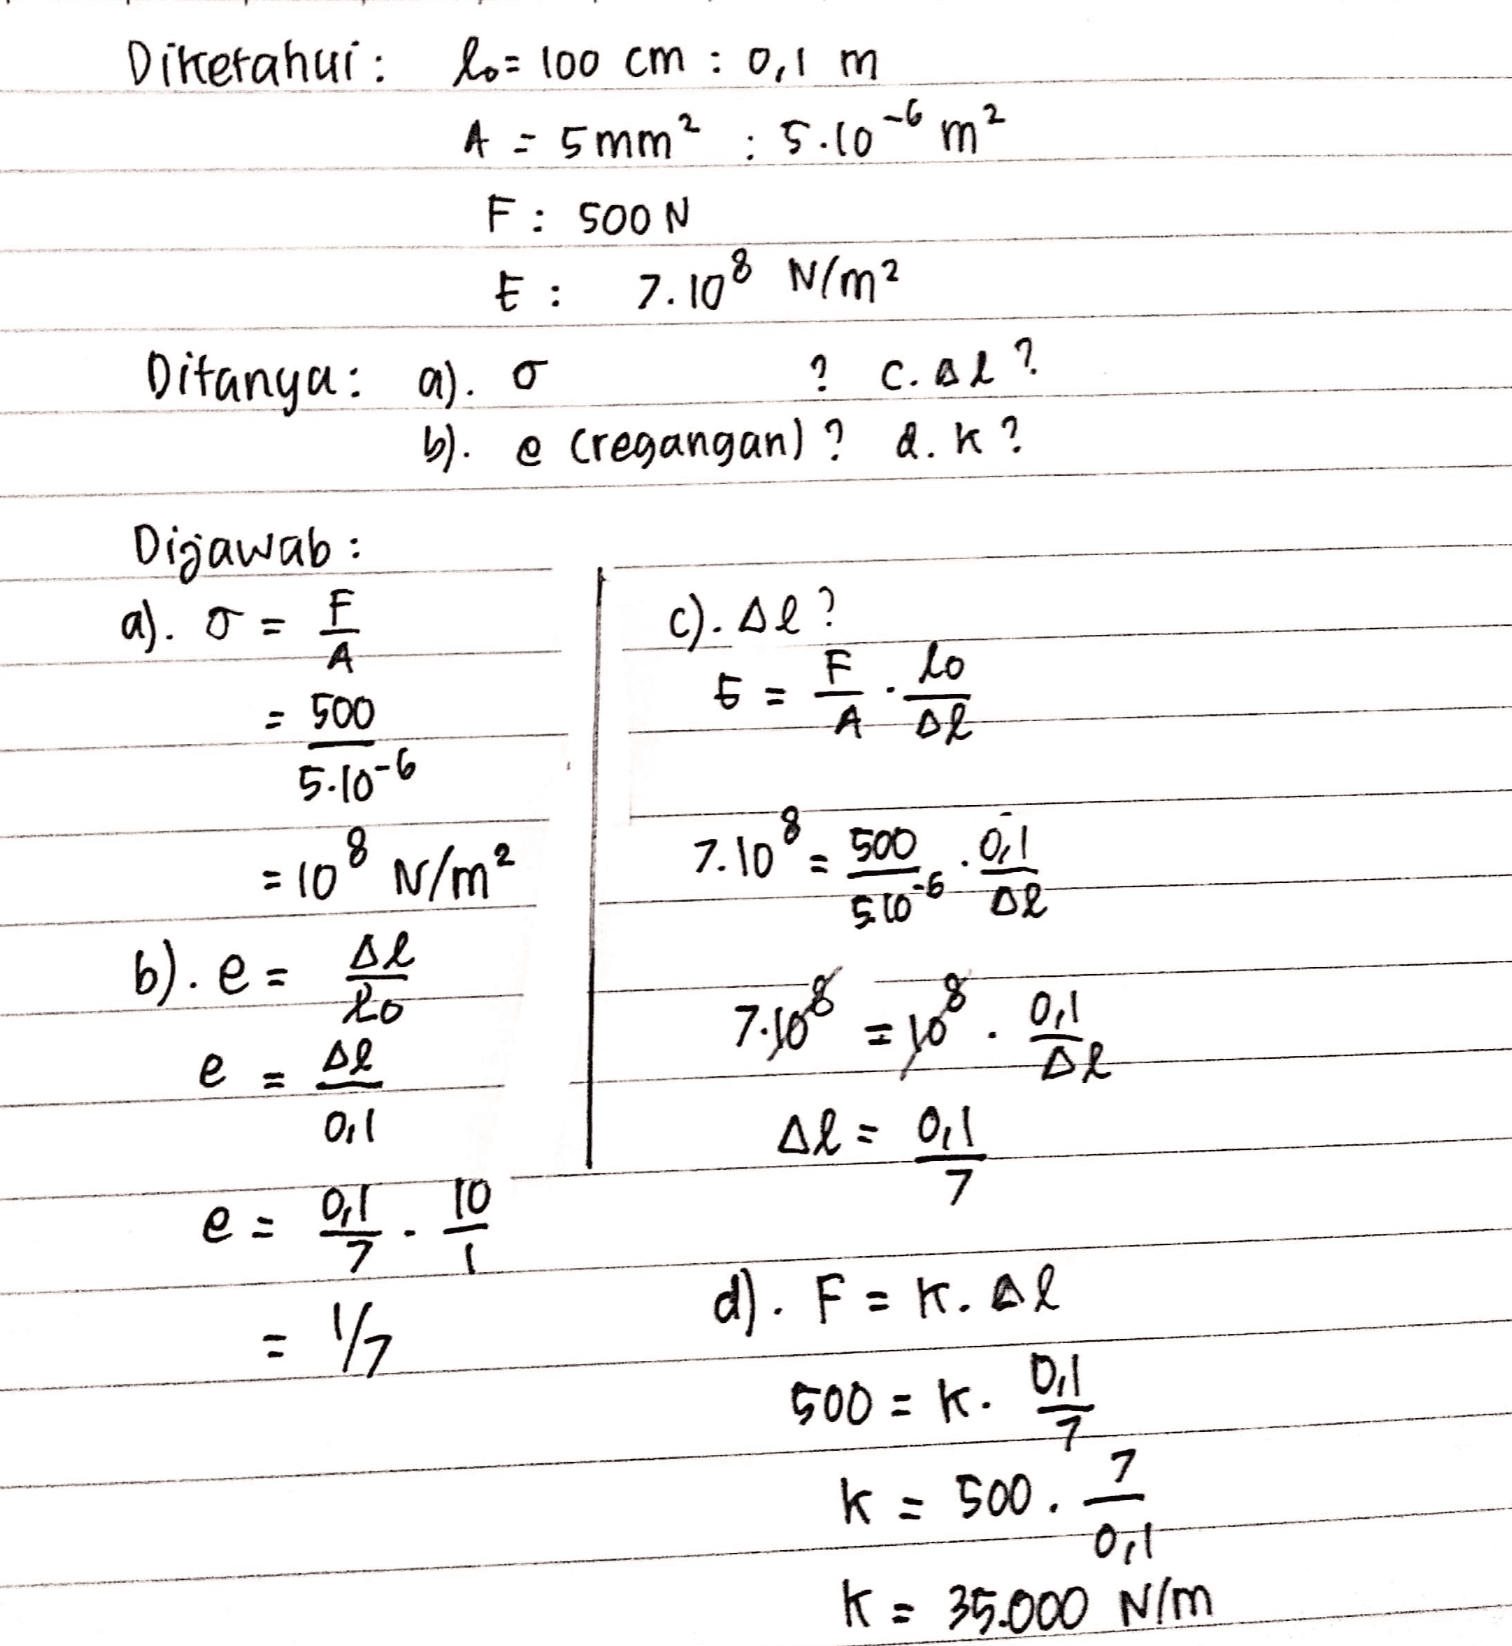 Diketahui : lo = 100 cm : 0,1 m
A = 5 mm² : 5.10⁻⁶ m²
F : 500 N
E : 7.10⁸ N/m²
Ditanya : a). σ ? c. Δl ?
b). e (regangan) ? d. k ?
Dijawab :
a). σ = F/A
= 500/5.10⁻⁶
= 10⁸ N/m²
b). e = Δl/lo
e = Δl/0,1
e = 0,1/7 . 10/1
= 1/7
c). Δl ?
E = F/A . lo/Δl
7.10⁸ = 500/5.10⁻⁶ . 0,1/Δl
7.10⁸ = 10⁸ . 0,1/Δl
Δl = 0,1/7
d). F = k . Δl
500 = k . 0,1/7
k = 500 . 7/0,1
k = 35.000 N/m